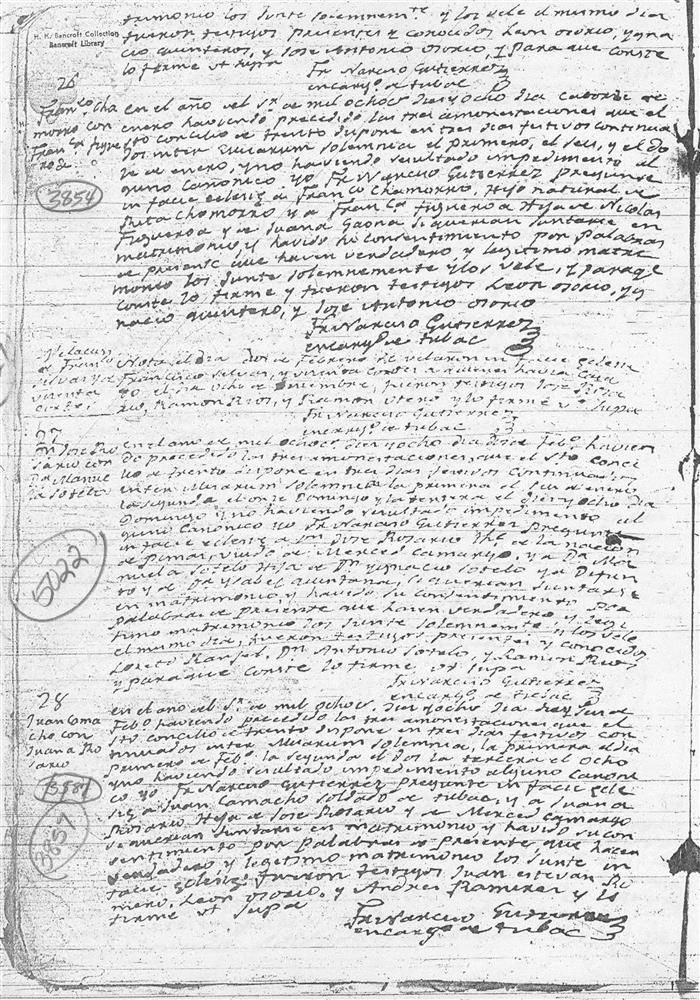 H. H. Bancroft Collection
Bancroft Library
trimonio los Junte solemnemte y los vele el mismo dia
fueron testigos presentes y conocidos Leon osorio, ygna
cio quinteros, y Jose Antonio osorio, y para que conste
lo firme ut supa
Fr Narciso Gutierrez
encargo de tubac
26
Franco Cha
morro con
Franca figue
roa
3854
en el año del Sr de mil ochos diez yocho dia catorce de
enero haviendo precedido las tres amonestaciones que el
sto concilio de trento dispone en tres dias festivos continua
dos inter Misarum solemnia el primero, el seis, y el do
ce de enero, y no haviendo resultado impedimento al
guno canonico yo Fr Narciso Gutierrez pregunte
in facie eclesie a Franco Chamorro, Hijo natural de
Rita Chamorro, y a Franca Figueroa Hija de Nicolas
Figueroa y de Juana Gaona si querian Juntarse en
matrimonio y havido su consentimiento por palabras
de presente que hacen verdadero, y legitimo matri
monio los Junte solemnemente y los vele, y paraqe
conste lo firme y fueron testigos Leon osorio, yg
nacio quintero, y Jose Antonio osorio
Fr Narciso Gutierrez
encargo de tubac
Velacion
de Franco
Silvas y
Nota, el dia dos de Febrero se velaron in facie eclesie
Francisco Silvas, y
yo, el dia ocho de fueron testigos Jose
Ramon Rios, y Ramon otero y lo firme ut supa
Fr Narciso Gutierrez
encargo de tubac
27
Dn Jose Ro
sario con
Da Manue
la Sotelo
5022
en el ano de mil ochos diez yocho dia de Febo havien
do precedido las tres amonestaciones, que el sto conci
lio de trento dispone en tres dias festivos continuados
inter Misarum solemnia la primera el
la segunda el onze Domingo y la tersera el diez yocho dia
Domingo y no haviendo resultado impedimento al
guno canonico yo Fr Narciso Gutierrez pregunte
in facie eclesie a Dn Jose Rosario de la nacion
de Pimas, viudo de Merced Camargo, y a Da Ma
nuela Sotelo Hija de Dn ygnacio Sotelo ya Difun
to y de Da ysabel quintana, si querian Juntarse
en matrimonio y havido su consentimiento por
palabras de presente que hacen verdadero y legi
timo matrimonio los Junte solemnemente y los vele
el mismo dia, fueron testigos presentes y conocidos
Loreto Rangel, Dn Antonio Sotelo, y Ramon Rios
y paraque conste lo firme ut supa
Fr Narciso Gutierrez
encargo de tubac
28
Juan Cama
cho con
Juana Ro
sario
3857
en el año del Sr de mil ochos. diez yocho dia diez
Febo haviendo precedido las tres amonestaciones que el
sto concilio de trento dispone en tres dias festivos con
tinuados inter Misarum solemnia, la primera el dia
primero de Febo. la segunda el dos la tercera el ocho
y no haviendo resultado impedimento alguno canoni
co yo Fr Narciso Gutierrez pregunte in facie ecle
sie a Juan Camacho soldado de tubac, y a Juana
Rosario Hija de Jose Rosario y de Merced Camargo
si querian Juntarse en matrimonio y havido su con
sentimiento por palabras de presente, que hacen
verdadero y legitimo matrimonio los Junte in
facie eclesie fueron testigos Juan estevan Ro
mero, Leon osorio, y Andres Ramirez y lo
firme ut supa
Fr Narciso Gutierrez
encargo de tubac